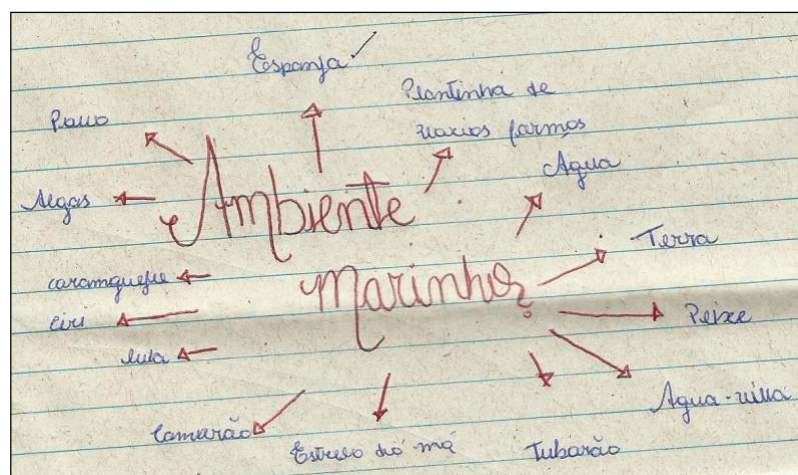 Esponja
Plantinha de
varios formos
Polvo
Água
Algas
Ambiente
Terra
caramgueijo
marinho?
siri
Peixe
lula
Agua-viva
Camarão
Estrela do má
Tubarão